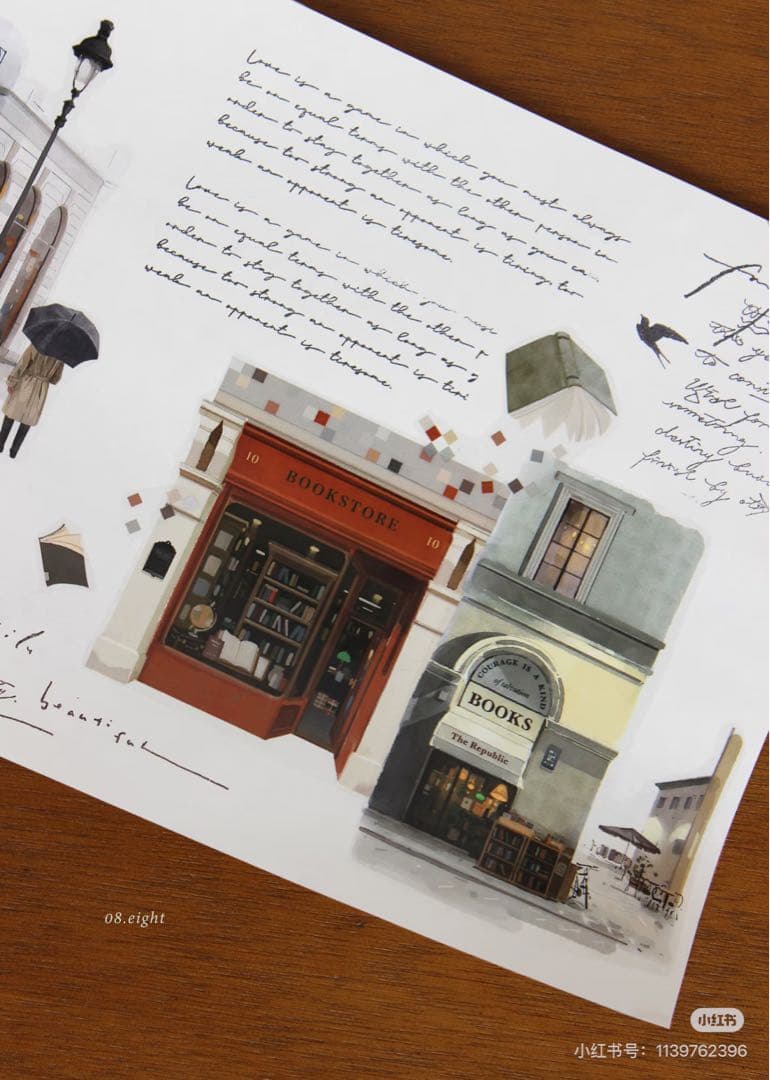 Love is a game in which you must always
be on equal terms with the other person in
order to stay together as long as you ca
because too strong an opponent is tiring too
weak an opponent is tiresome.
Love is a game in which you must
be on equal terms with the other p
order to stay together as long as y
because too strong an opponent is tiri
weak an opponent is tiresome.
to
something.
destiny
10 BOOKSTORE 10
COURAGE IS A KIND
of salvation
BOOKS
The Republic
beautiful
08.eight
小红书
小红书号：1139762396